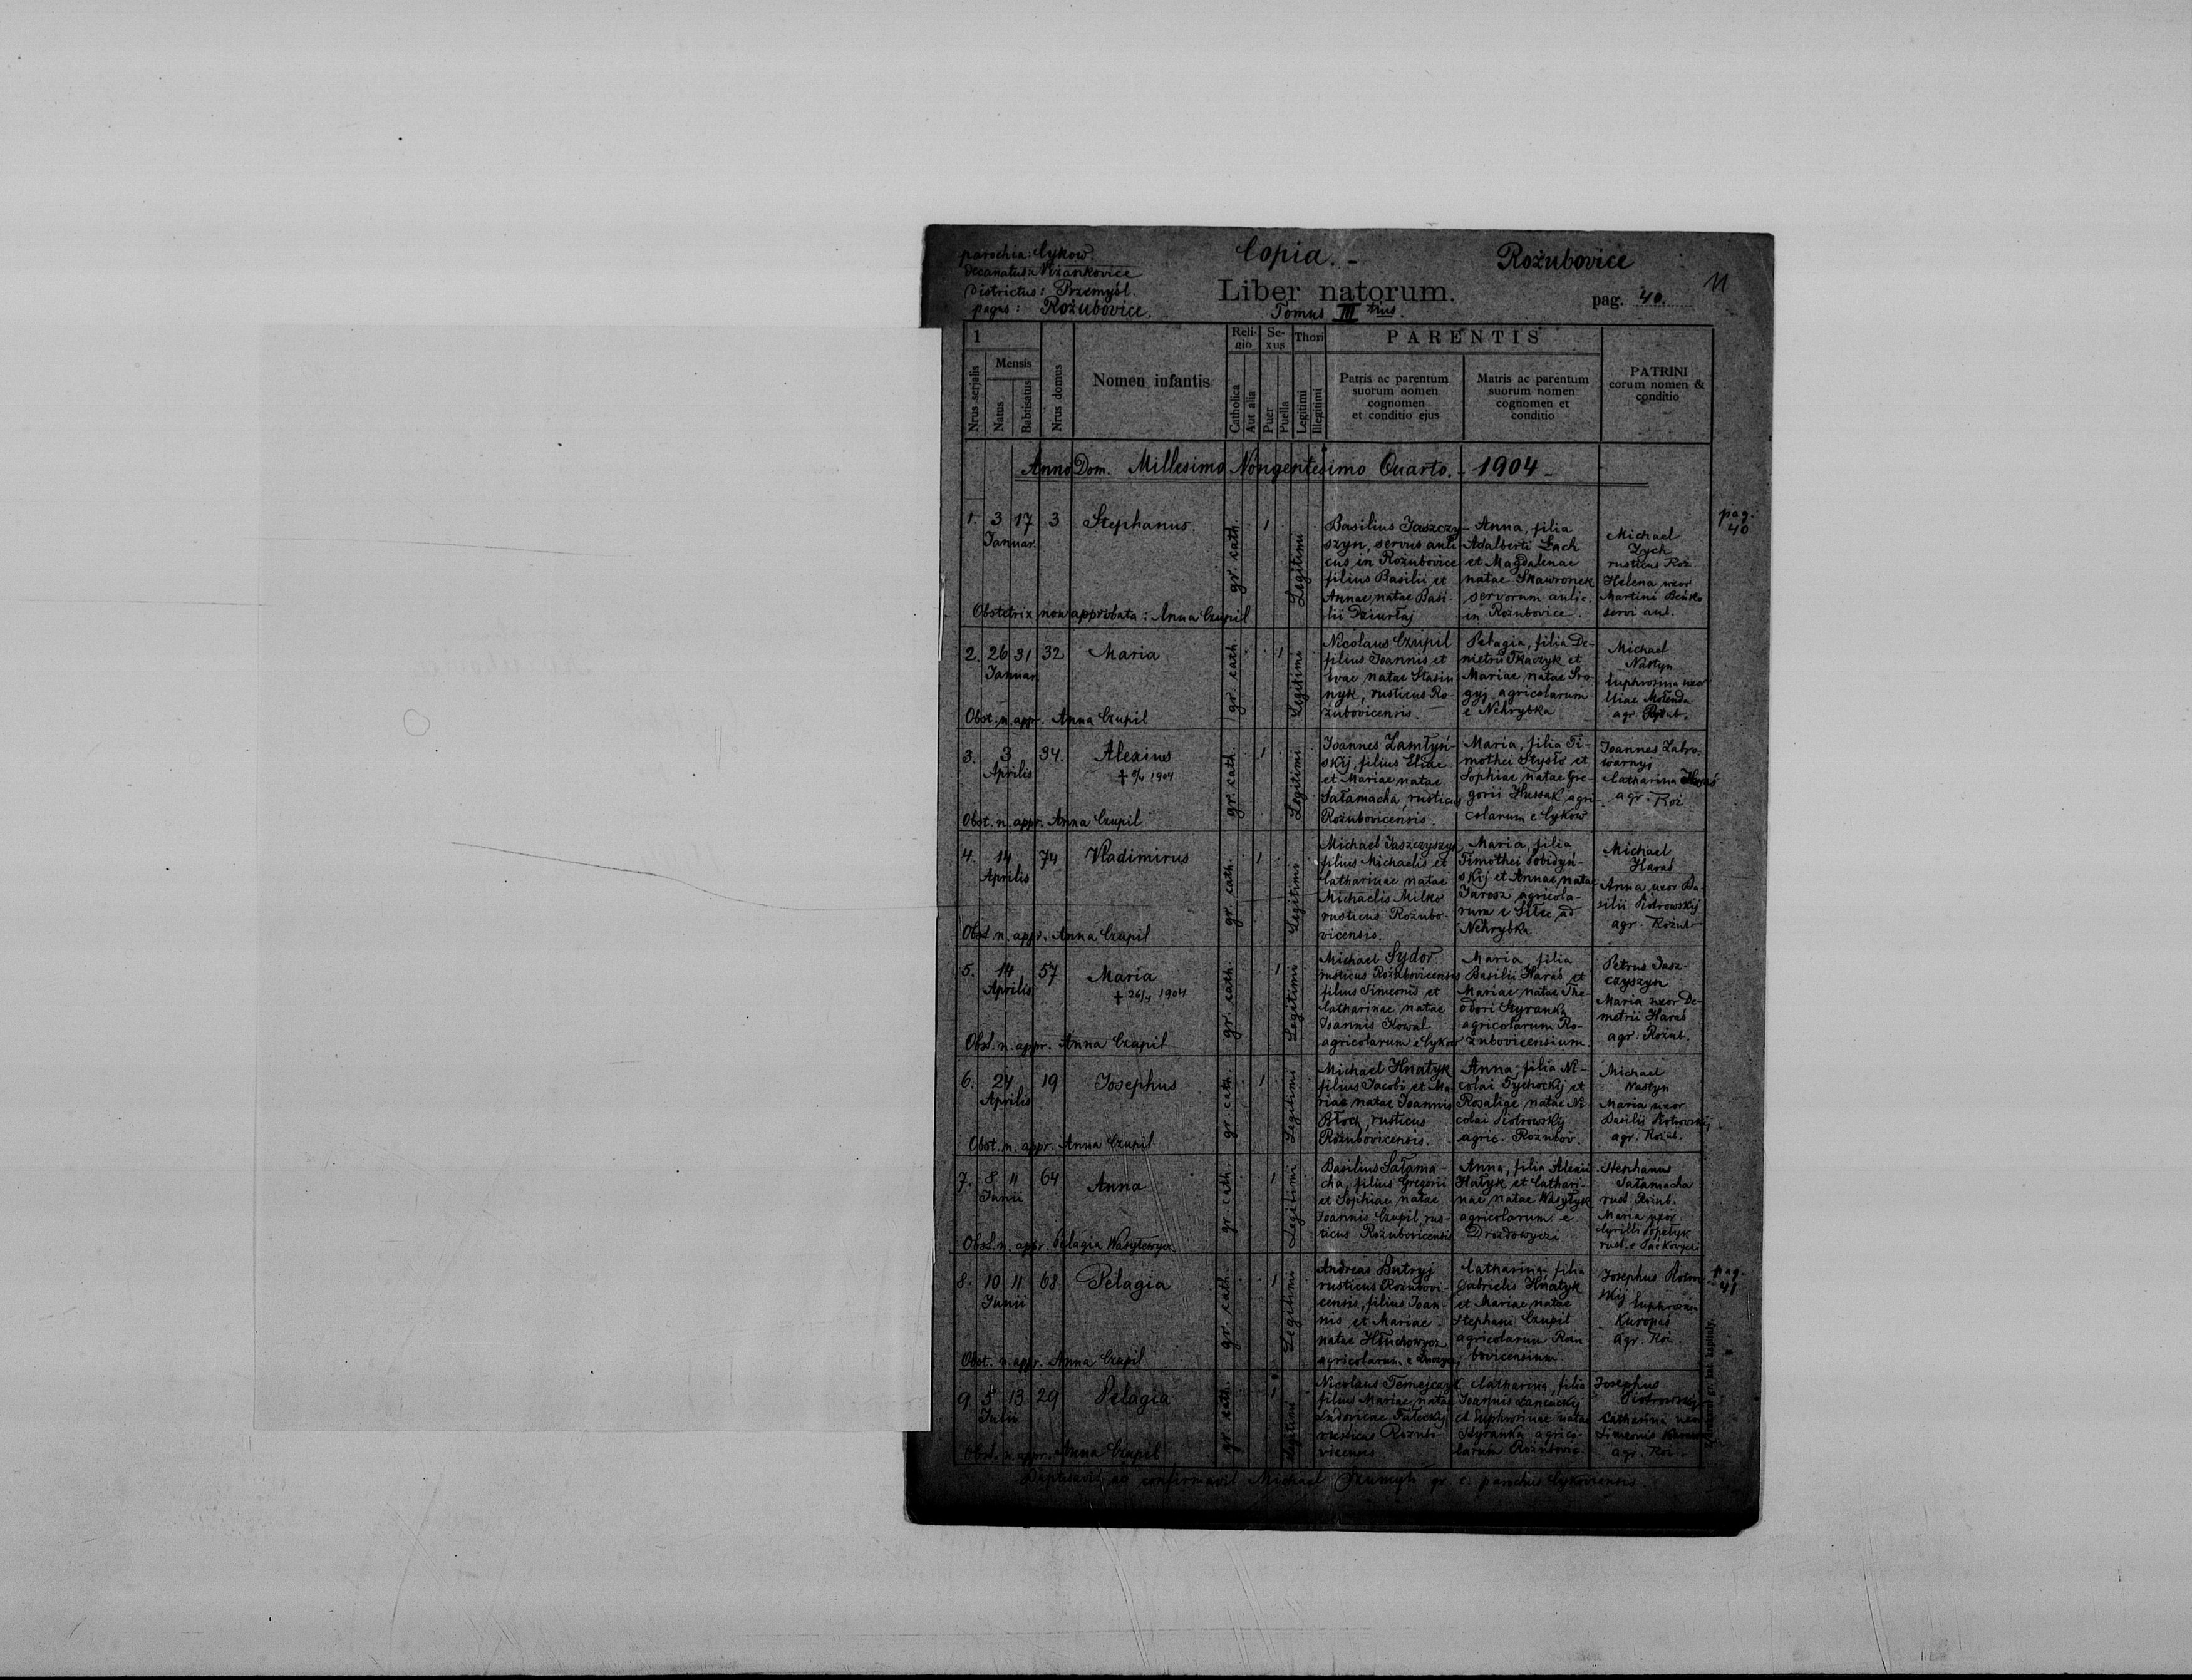 parochia: Cykow.
Decanatus: Niżankovice
Districtus: Przemyśl.
pagus: Rożubovice.
Copia. -
Rożubovice
Liber natorum.
Tomus III tius.
pag. 40.
11
1
Nrus serjalis
Mensis
Natus
Babtisatus
Nrus domus
Nomen infantis
Religio
Catholica
Aut alia
Sexus
Puer
Puella
Thori
Legitimi
Illegitimi
PARENTIS
Patris ac parentum
suorum nomen
cognomen
et conditio ejus
Matris ac parentum
suorum nomen
cognomen et
conditio
PATRINI
eorum nomen &
conditio
Anno Dom. Millesimo Nongentesimo Quarto. - 1904 -
1. 3 17 3 Stephanus.
Januar.
gr. cath.
1
Legitimi
Basilius Jaszczy-
szyn, servus auli
cus in Rożubovice
filius Basilii et
Annae natae Basi-
lii Dziurłaj
Anna, filia
Adalberti Łach
et Magdalenae
natae Skawronek
servorum aulic.
in Rożubovice.
Michael
Zych
rusticus Roż.
Helena uxor
Martini
servi aul.
pag.
40
Obstetrix non approbata: Anna Czupil
2. 26 31 32 Maria
Januar.
gr. cath.
1
Legitimi
Nicolaus Czupil
filius Joannis et
Evae natae Stasiu
nyk, rusticus Ro-
żubovicensis.
Pelagia, filia De-
metrii Tkaczyk et
Mariae natae Sro-
gyj agricolarum
e Nehrybka
Michael
Nastyn
Euphrosina uxor
Eliae Mołenda
agr. Rożub.
Obst. n. appr. Anna Czupil
3. 3 34. Alexius
Aprilis
† 9/4 1904
gr. cath.
1
Legitimi
Joannes Zamłyń-
skij, filius Eliae
et Mariae natae
Sałamacha, rusticus
Rożubovicensis.
Maria, filia Ti-
mothei Stysło et
Sophiae natae Gre-
gorii Hussak, agri-
colarum e Cykow
Joannes Zabro-
warnyj
Catharina Haraś
agr. Roż
Obst. n. appr. Anna Czupil
4. 14 74 Vladimirus
Aprilis
gr. cath.
1
Legitimi
Michael Jaszczyszyn
filius Michaelis et
Catharinae natae
Michaelis Milko
rusticus Rożubo-
vicensis.
Maria, filia
Timothei Sobidyń-
skij et Annae natae
Jarosz agricola-
rum e Silec ad
Nehrybka
Michael
Haraś
Anna uxor Ba-
silii Piotrowskij
agr. Rożub
Obst. n. appr. Anna Czupil
5. 14 57 Maria
Aprilis
† 26/4 1904
gr. cath.
1
Legitimi
Michael Sydor
rusticus Rożubovicensis
filius Simeonis et
Catharinae natae
Joannis Kowal
agricolarum e Cykow
Maria, filia
Basilii Haraś et
Mariae natae The-
odori Styranka
agricolarum Ro-
żubovicensium.
Petrus Jasz-
czyszyn
Maria uxor De-
metrii Haraś
agr. Rożub.
Obst. n. appr. Anna Czupil
6. 24 19 Josephus
Aprilis
gr. cath.
1
Legitimi
Michael Hnatyk
filius Jacobi et Ma-
riae natae Joannis
Błock, rusticus
Rożubovicensis.
Anna, filia Ni-
colai Tychockij et
Rosaliae natae Ni-
colai Piotrowskij
agric. Rożubov.
Michael
Nastyn
Maria uxor
Basilii Piotrowskij
agr. Rożub.
Obst. n. appr. Anna Czupil
7. 8 11 64 Anna
Junii
gr. cath.
1
Legitimi
Basilius Sałama-
cha, filius Gregorii
et Sophiae natae
Joannis Czupil rus-
ticus Rożubovicensis
Anna, filia Alexii
Hałyk et Cathari-
nae natae Wasyłyk
agricolarum e
Drozdowyczi
Stephanus
Sałamacha
rust. Rożub.
Maria uxor
Cyrilli Popełyk
rust. e
Obst. n. appr. Pelagia Wasyłewycz
8. 10 11 68 Pelagia
Junii
gr. cath.
1
Legitimi
Andreas Butryj
rusticus Rożubovi-
censis, filius Joan-
nis et Mariae
natae Hłuchowycz
agricolarum e
Catharina, filia
Gabrielis Hnatyk
et Mariae natae
Stephani Czupil
agricolarum Rożu-
bovicensium
Josephus Piotrow-
skij Euphrosina
Kuropaś
agr. Roż.
pag.
41
Obst. n. appr. Anna Czupil
9 5 13 29 Pelagia
Julii
gr. cath.
1
Legitimi
Nicolaus Temejczyk
filius Mariae natae
Ludovicae Fałeckij
rusticus Rożubo-
vicensis
Catharina, filia
Joannis Łancuckij
et Euphrosinae natae
Styranka agrico-
larum Rożubovic.
Josephus
Piotrowskij
Catharina uxor
Simeonis
agr. Roż.
Obst. n. appr. Anna Czupil
Baptisavit ac confirmavit Michael gr. c. parochus Cykoviensis.